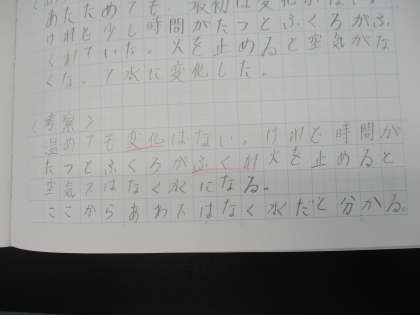 あたためても、最初は変化がない。
けれど少し時間がたつとふくろがふ
くれていた。火を止めると空気がな
くな、水に変化した。
〈考察〉
温めても変化はない。けれど時間が
たつとふくろがふくれ火を止めると
空気スはなく水になる。
ここからあわスはなく水だと分かる。